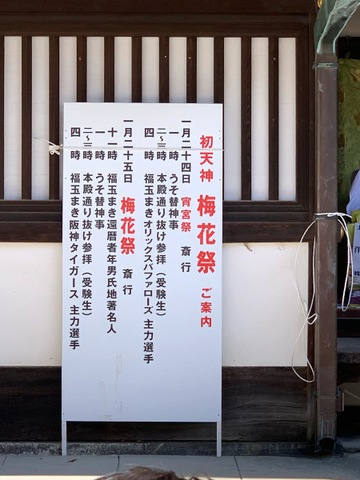 初天神 梅花祭 ご案内
一月二十四日 宵宮祭 斎行
一時 うそ替神事
二~三時 本殿通り抜け参拝(受験生)
四時 福玉まきオリックスバファローズ 主力選手
一月二十五日 梅花祭 斎行
十一時 福玉まき還暦者年男氏地著名人
一時 うそ替神事
二~三時 本殿通り抜け参拝(受験生)
四時 福玉まき阪神タイガース 主力選手